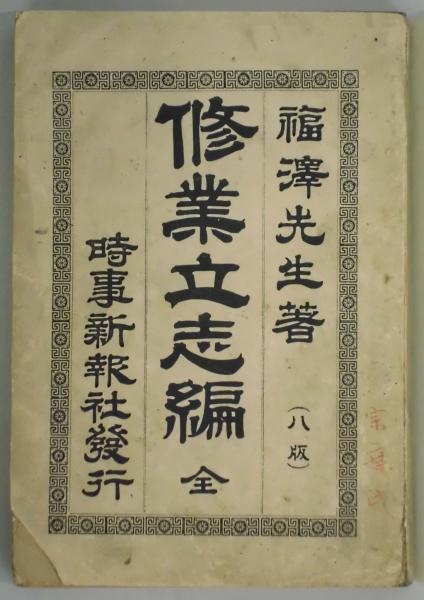 福澤先生著
(八版)
修業立志編 全
時事新報社發行